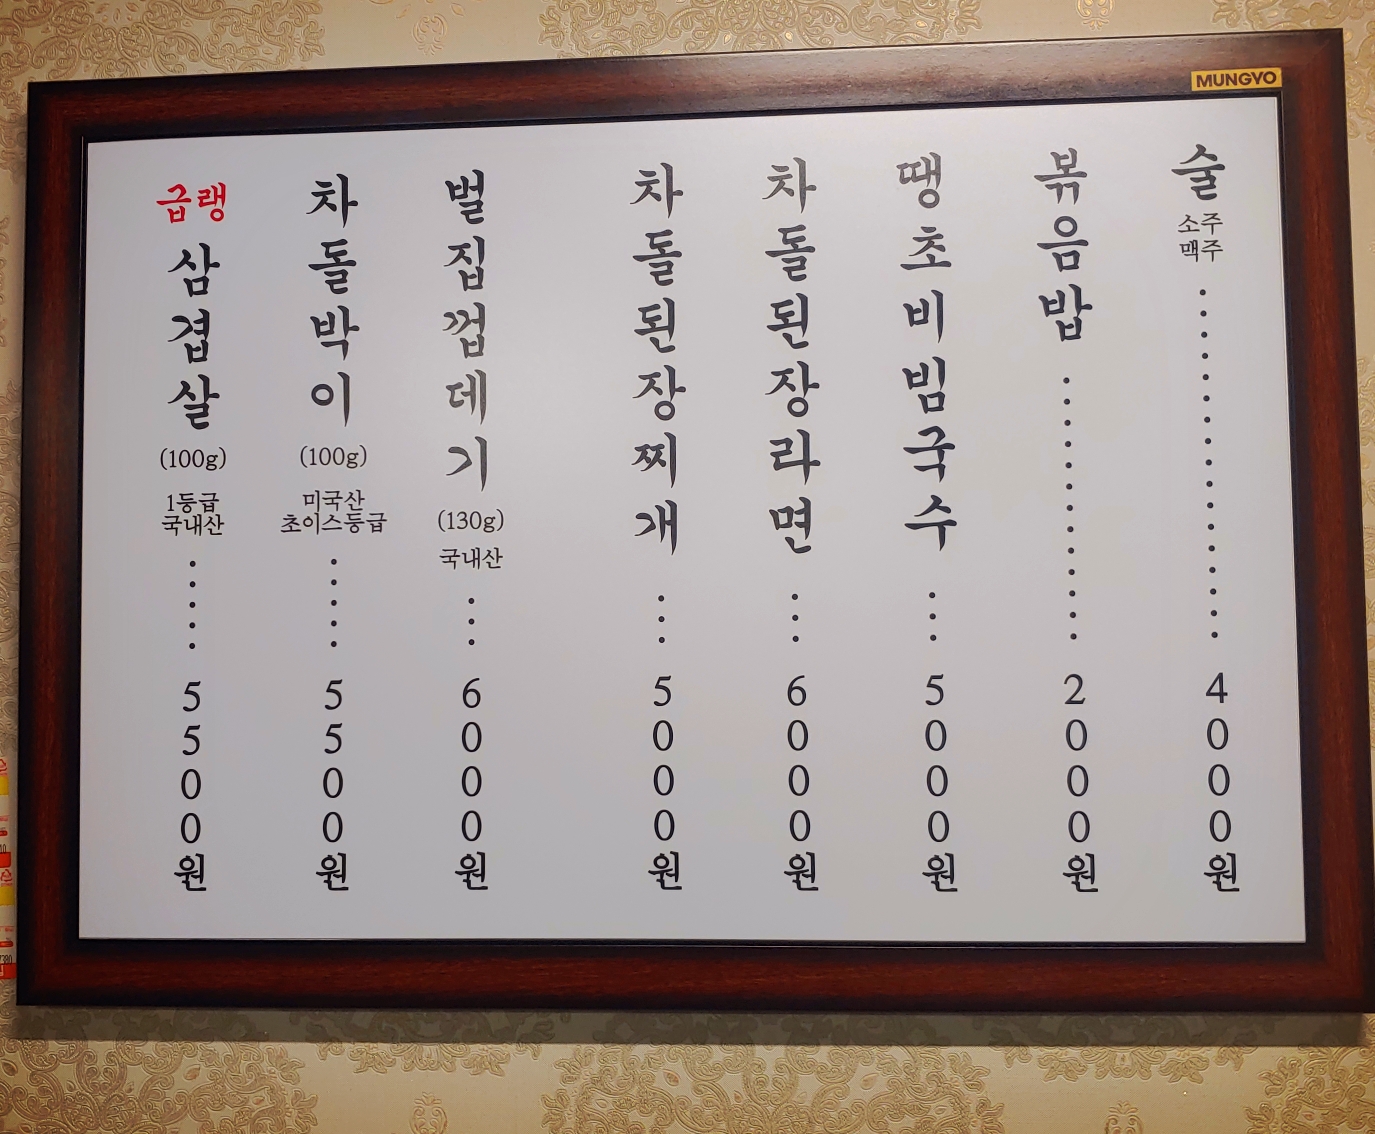 MUNGYO
급랭
삼겹살
(100g)
1등급
국내산
5500원
차돌박이
(100g)
미국산
초이스등급
5500원
벌집껍데기
(130g)
국내산
6000원
차돌된장찌개
5000원
차돌된장라면
6000원
땡초비빔국수
5000원
볶음밥
2000원
술
소주
맥주
4000원